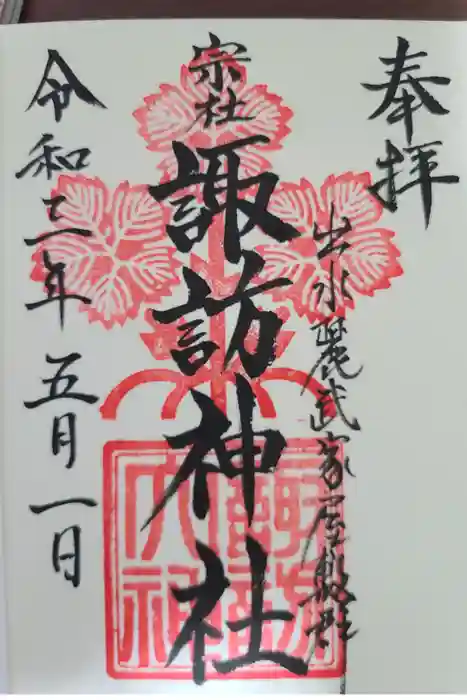 奉拝
出水麓武家屋敷群
宗社
諏訪神社
令和三年五月一日